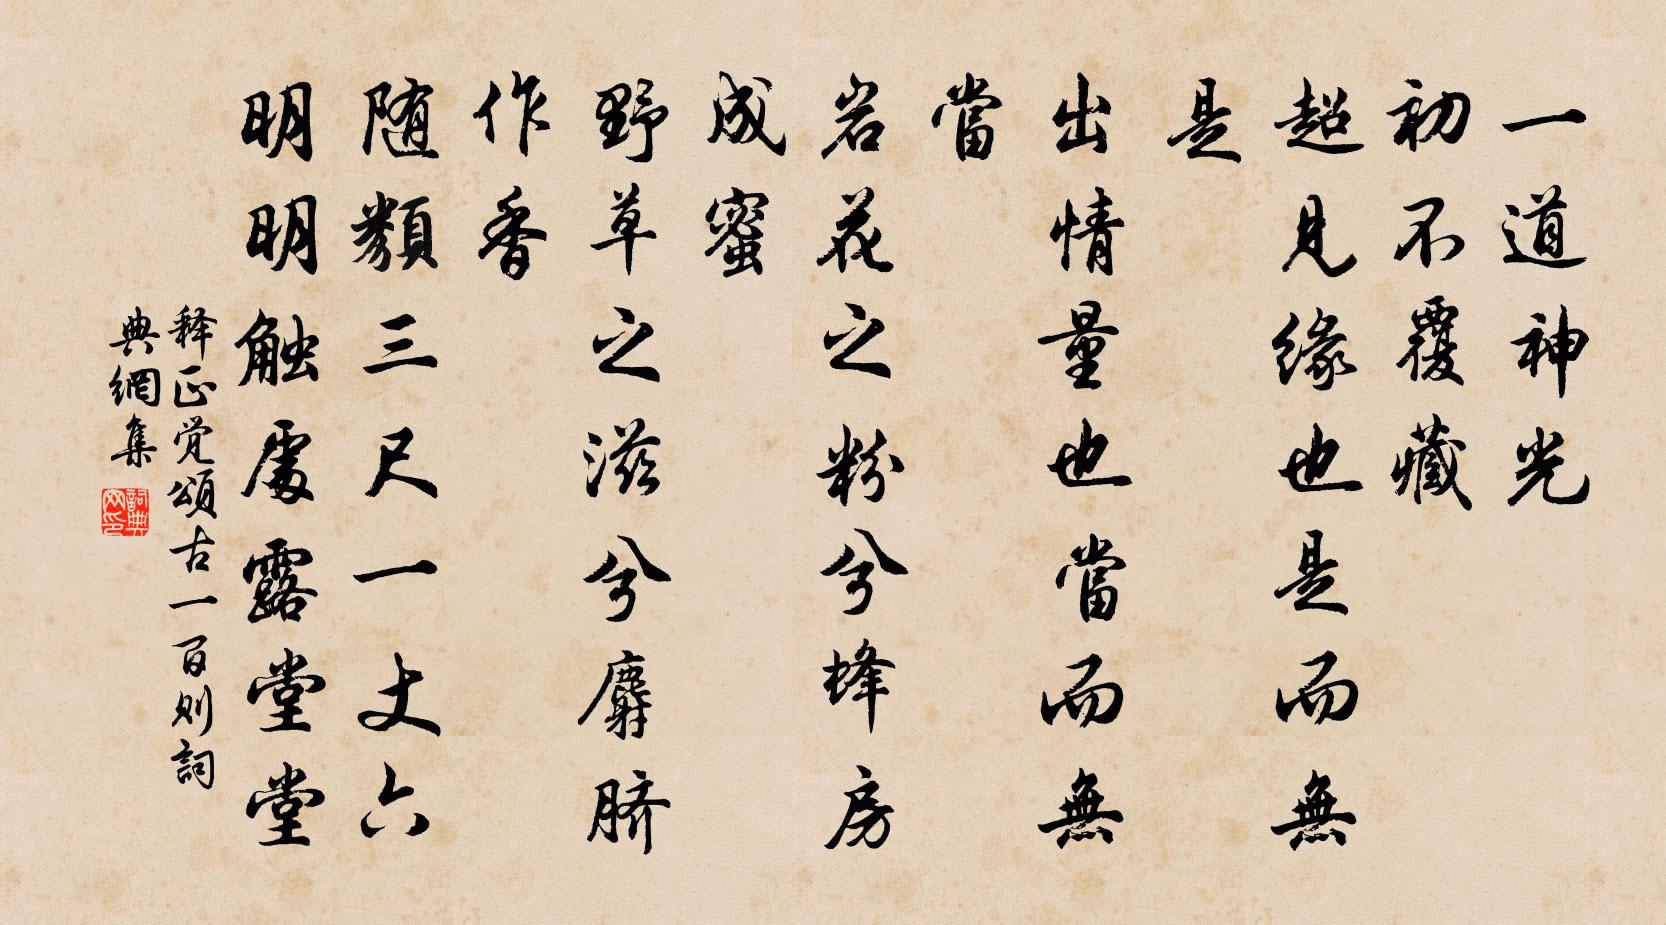 一道神光
初不覆藏
超見缘也是而無
是
出情量也當而無
當
岩花之粉兮蜂房
成蜜
野草之滋兮麝脐
作香
随類三尺一丈六
明明触處露堂堂
释正觉頌古一百则詞
典網集
詞典网印